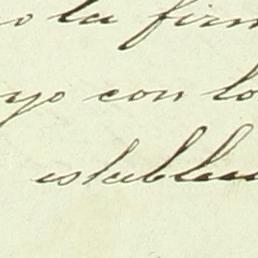 o la firm
yo con lo
estableci